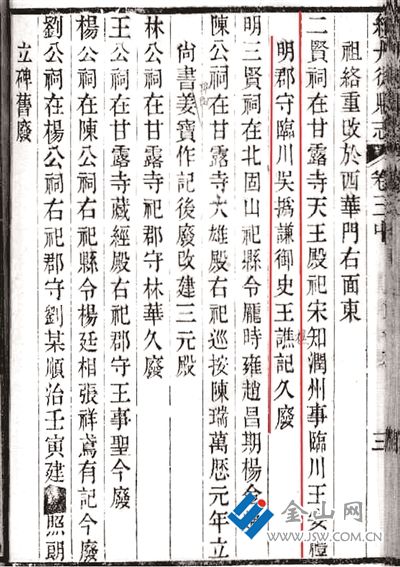 丹徒縣志
卷三十
三
祖絡重改於西華門右面東
二賢祠在甘露寺天王殿祀宋知潤州事臨川王安禮
明郡守臨川吳撝謙御史王譙記久廢
明三賢祠在北固山祀縣令龐時雍趙昌期楊
陳公祠在甘露寺大雄殿右祀巡按陳瑞萬歷元年立
尚書姜寶作記後廢改建三元殿
林公祠在甘露寺祀郡守林華久廢
王公祠在甘露寺藏經殿右祀郡守王事聖今廢
楊公祠在陳公祠右祀縣令楊廷相張祥鳶有記今廢
劉公祠在楊公祠右祀郡守劉某順治壬寅建照朗
立碑舊廢
金山网
www.JSW.com.cn